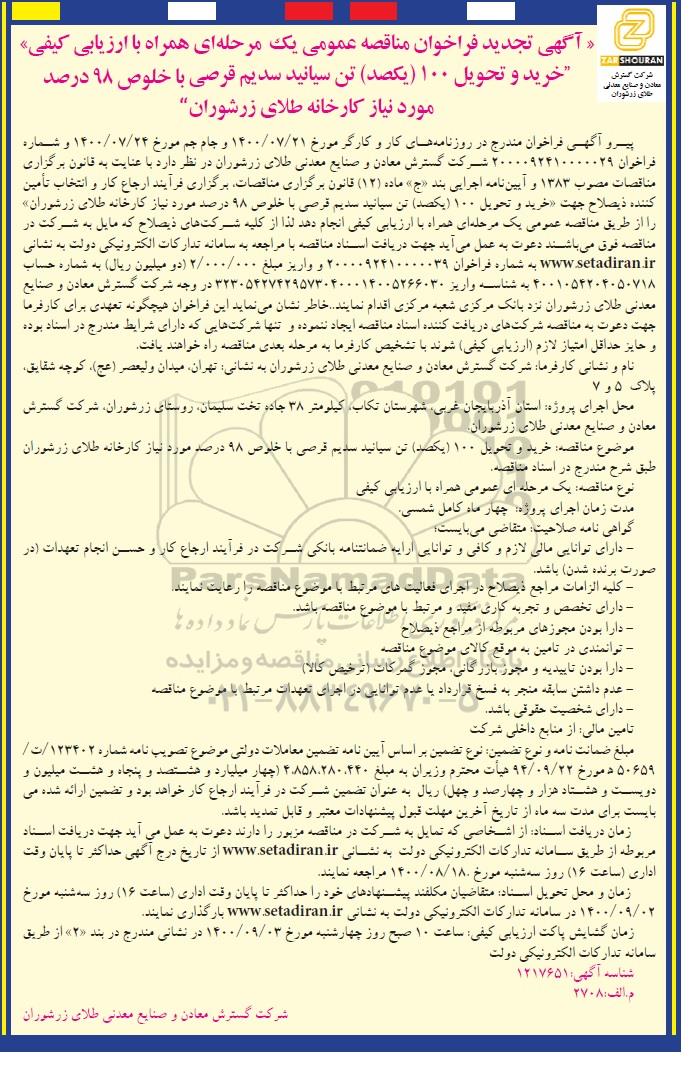 ZARSHOURAN
شرکت گسترش
معادن و صنایع معدنی
طلای زرشوران
« آگهی تجدید فراخوان مناقصه عمومی یک مرحله‌ای همراه با ارزیابی کیفی»
”خرید و تحویل ۱۰۰ (یکصد) تن سیانید سدیم قرصی با خلوص ۹۸ درصد
مورد نیاز کارخانه طلای زرشوران“
پیـــرو آگهـــی فراخوان مندرج در روزنامه‌هـــای کار و کارگر مورخ ۱۴۰۰/۰۷/۲۱ و جام جم مورخ ۱۴۰۰/۰۷/۲۴ و شـــماره
فراخوان ۲۰۰۰۰۹۲۴۱۰۰۰۰۰۲۹ شـــرکت گسترش معادن و صنایع معدنی طلای زرشوران در نظر دارد با عنایت به قانون برگزاری
مناقصات مصوب ۱۳۸۳ و آیین‌نامه اجرایی بند «ج» ماده (۱۲) قانون برگزاری مناقصات، برگزاری فرآیند ارجاع کار و انتخاب تأمین
کننده ذیصلاح جهت «خرید و تحویل ۱۰۰ (یکصد) تن سیانید سدیم قرصی با خلوص ۹۸ درصد مورد نیاز کارخانه طلای زرشوران»
را از طریق مناقصه عمومی یک مرحله‌ای همراه با ارزیابی کیفی انجام دهد لذا از کلیه شـــرکت‌های ذیصلاح که مایل به شـــرکت در
مناقصه فوق می‌باشـــند دعوت به عمل می‌آید جهت دریافت اســـناد مناقصه با مراجعه به سامانه تدارکات الکترونیکی دولت به نشانی
www.setadiran.ir به شماره فراخوان ۲۰۰۰۰۹۲۴۱۰۰۰۰۰۳۹ و واریز مبلغ ۲/۰۰۰/۰۰۰ (دو میلیون ریال) به شماره حساب
۴۰۰۱۰۵۴۲۰۴۰۵۰۷۱۸ به شناســـه واریز ۳۲۳۰۵۴۲۷۴۲۹۵۷۳۰۴۰۰۰۱۴۰۰۵۲۶۶۰۳۰ در وجه شرکت گسترش معادن و صنایع
معدنی طلای زرشوران نزد بانک مرکزی شعبه مرکزی اقدام نمایند..خاطر نشان می‌نماید این فراخوان هیچگونه تعهدی برای کارفرما
جهت دعوت به مناقصه شرکت‌های دریافت کننده اسناد مناقصه ایجاد ننموده و  تنها شرکت‌هایی که دارای شرایط مندرج در اسناد بوده
و حایز حداقل امتیاز لازم (ارزیابی کیفی) شوند با تشخیص کارفرما به مرحله بعدی مناقصه راه خواهند یافت.
نام و نشانی کارفرما: شرکت گسترش معادن و صنایع معدنی طلای زرشوران به نشانی: تهران، میدان ولیعصر (عج)، کوچه شقایق،
پلاک ۵ و ۷
محل اجرای پروژه: استان آذربایجان غربی، شهرستان تکاب، کیلومتر ۳۸ جاده تخت سلیمان، روستای زرشوران، شرکت گسترش
معادن و صنایع معدنی طلای زرشوران.
موضوع مناقصه: خرید و تحویل ۱۰۰ (یکصد) تن سیانید سدیم قرصی با خلوص ۹۸ درصد مورد نیاز کارخانه طلای زرشوران
طبق شرح مندرج در اسناد مناقصه.
نوع مناقصه: یک مرحله ای عمومی همراه با ارزیابی کیفی
مدت زمان اجرای پروژه:  چهار ماه کامل شمسی.
گواهی نامه صلاحیت: متقاضی می‌بایست؛
– دارای توانایی مالی لازم و کافی و توانایی ارایه ضمانتنامه بانکی شـــرکت در فرآیند ارجاع کار و حســـن انجام تعهدات (در
صورت برنده شدن) باشد.
ParsNamadData
– کلیه الزامات مراجع ذیصلاح در اجرای فعالیت های مرتبط با موضوع مناقصه را رعایت نمایند.
– دارای تخصص و تجربه کاری مفید و مرتبط با موضوع مناقصه باشد.
– دارا بودن مجوزهای مربوطه از مراجع ذیصلاح
– توانمندی در تامین به موقع کالای موضوع مناقصه
پایگاه اطلاع رسانی مناقصه و مزایده
– دارا بودن تاییدیه و مجوز بازرگانی، مجوز گمرکات (ترخیص کالا)
– عدم داشتن سابقه منجر به فسخ قرارداد یا عدم توانایی در اجرای تعهدات مرتبط با موضوع مناقصه
۰۲۱-۸۸۳۴۹۶۷۰-۵
– دارای شخصیت حقوقی باشد.
تامین مالی: از منابع داخلی شرکت
مبلغ ضمانت نامه و نوع تضمین: نوع تضمین بر اساس آیین نامه تضمین معاملات دولتی موضوع تصویب نامه شماره ۱۲۳۴۰۲/ت/
۵۰۶۵۹ ه مورخ ۹۴/۰۹/۲۲ هیأت محترم وزیران به مبلغ ۴،۸۵۸،۲۸۰،۴۴۰ (چهار میلیارد و هشـــتصد و پنجاه و هشـــت میلیون و
دویســـت و هشـــتاد هزار و چهارصد و چهل) ریال  به عنوان تضمین شـــرکت در فرآیند ارجاع کار خواهد بود و تضمین ارائه شده می
بایست برای مدت سه ماه از تاریخ آخرین مهلت قبول پیشنهادات معتبر و قابل تمدید باشد.
زمان دریافت اســـناد: از اشـــخاصی که تمایل به شـــرکت در مناقصه مزبور را دارند دعوت به عمل می آید جهت دریافت اســـناد
مربوطه از طریق ســـامانه تدارکات الکترونیکی دولت  به نشـــانی www.setadiran.ir از تاریخ درج آگهی حداکثر تا پایان وقت
اداری (ساعت ۱۶) روز سه‌شنبه مورخ ۱۴۰۰/۰۸/۱۸. مراجعه نمایند.
زمان و محل تحویل اســـناد: متقاضیان مکلفند پیشـــنهادهای خود را حداکثر تا پایان وقت اداری (ساعت ۱۶) روز سه‌شنبه مورخ
۱۴۰۰/۰۹/۰۲ در سامانه تدارکات الکترونیکی دولت به نشانی www.setadiran.ir بارگذاری نمایند.
زمان گشایش پاکت ارزیابی کیفی: ساعت ۱۰ صبح روز چهارشنبه مورخ ۱۴۰۰/۰۹/۰۳ در نشانی مندرج در بند «۲» از طریق
سامانه تدارکات الکترونیکی دولت
شناسه آگهی: ۱۲۱۷۶۵۱
م.الف: ۲۷۰۸
شرکت گسترش معادن و صنایع معدنی طلای زرشوران